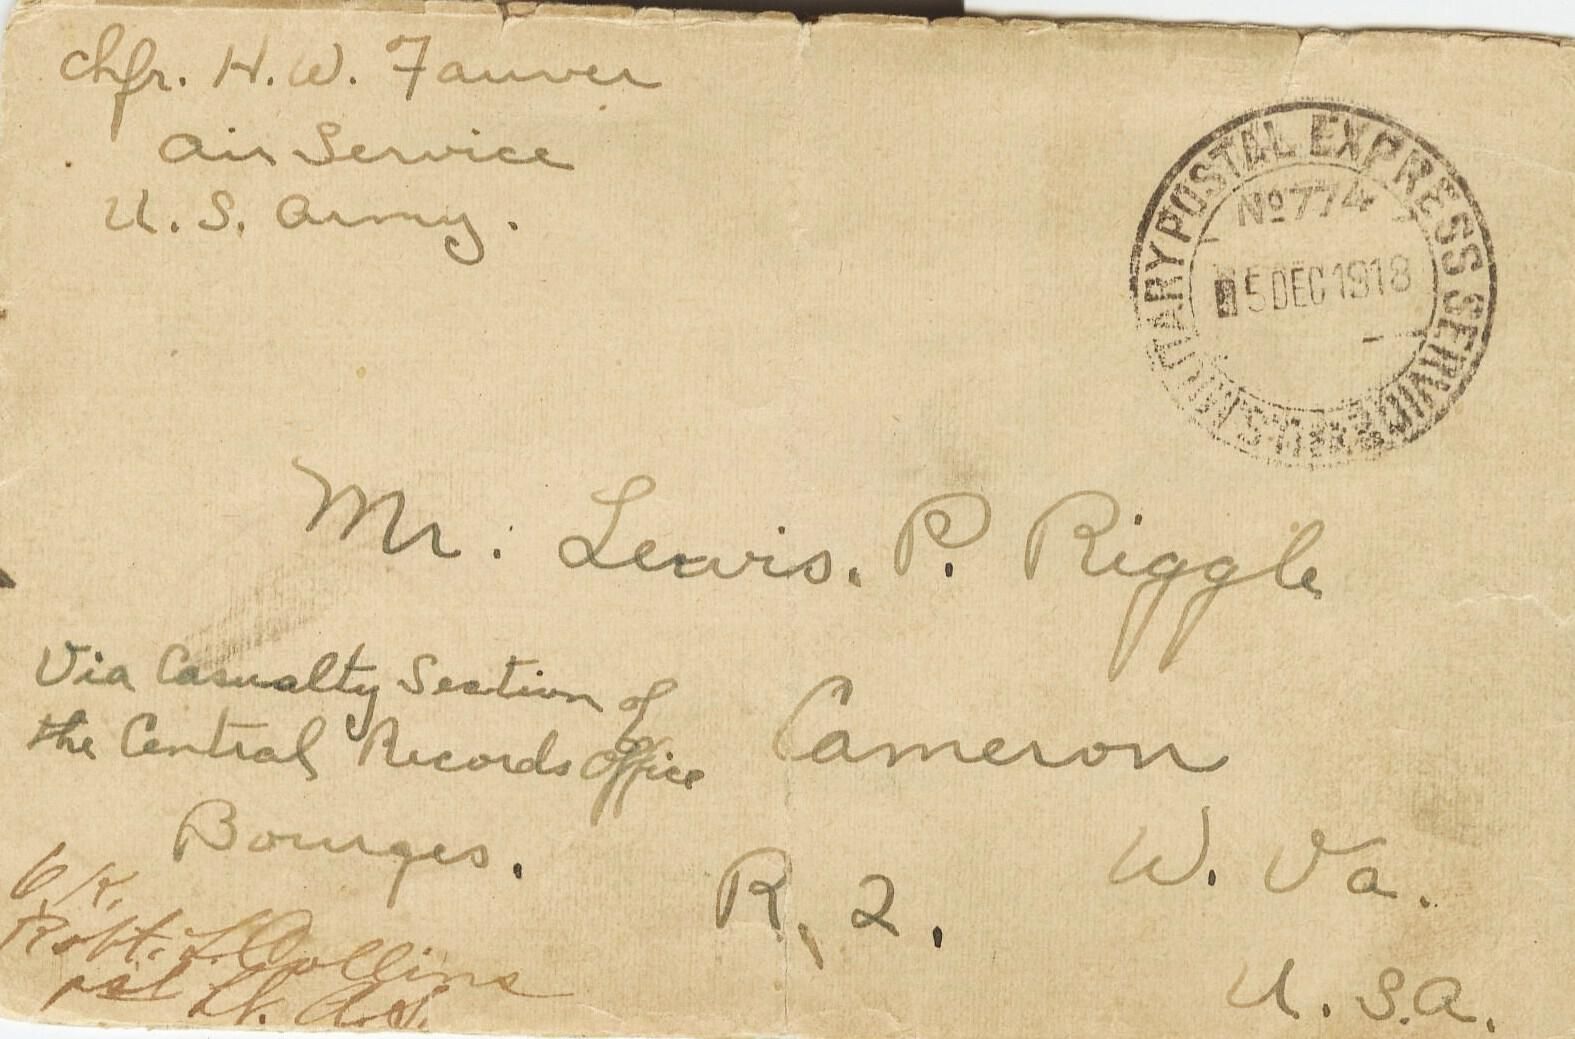 Chfr. H. W. Fauver
Air Service
U. S. Army.
U.S. MILITARY POSTAL EXPRESS SERVICE
No 774
5 DEC 1918
Mr. Lewis. P. Riggle
Via Casualty Section of
the Central Records Office
Bourges.
Cameron
W. Va.
R. 2.
U. S. A.
O.K.
Robt. L. Collins
1st Lt. A.S.